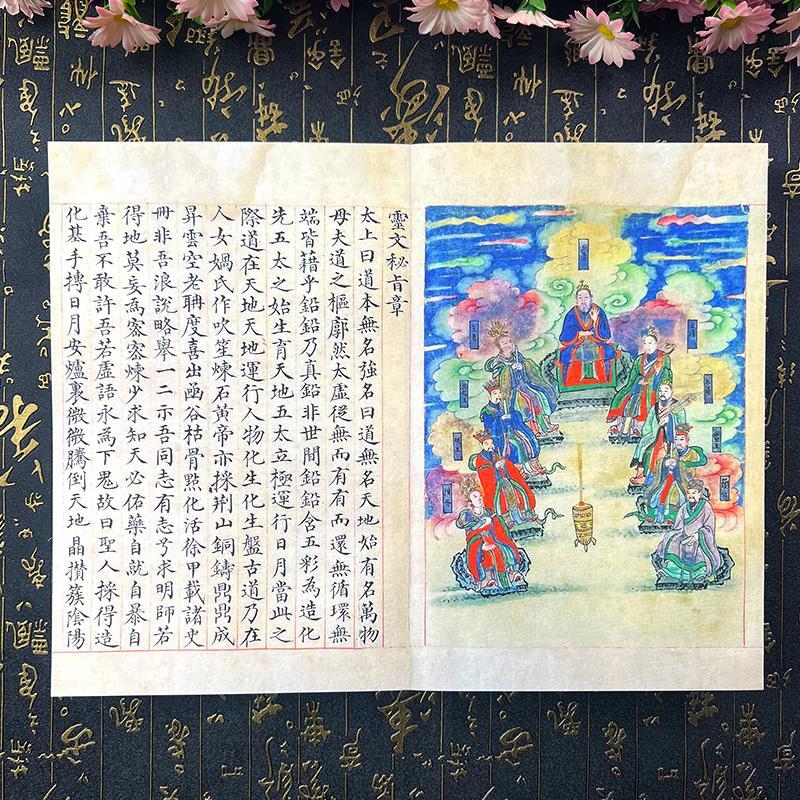 靈文秘旨章
太上曰道本無名強名曰道無名天地始有名萬物
母夫道之樞廓然太虛從無而有有而還無循環無
端皆藉乎鉛鉛乃真鉛非世間鉛鉛含五彩為造化
先五太之始生育天地五太立極運行日月當此之
際道在天地天地運行人物化生化生盤古道乃在
人女媧氏作吹笙煉石黃帝亦採荆山銅鑄鼎鼎成
昇雲空老聃度喜出函谷枯骨點化活徐甲載諸史
冊非吾浪說略舉一二示吾同志有志兮求明師若
得地莫妄為密密煉少求知天必佑藥自就自暴自
棄吾不敢許吾若虛語永為下鬼故曰聖人採得造
化基手摶日月安爐裏微微騰倒天地晶攢簇陰陽